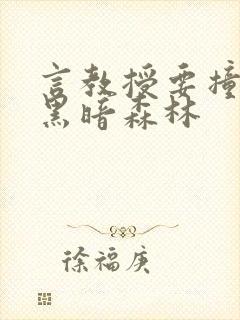 言教授要撞
黑暗森林
徐福庚